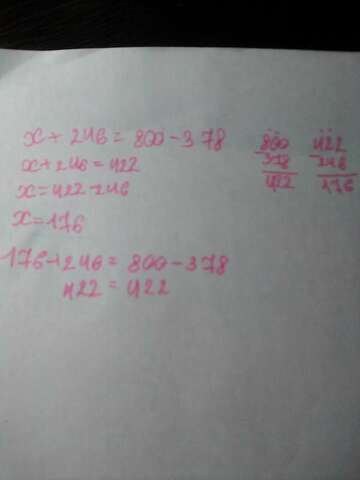 x + 246 = 800 - 378
x + 246 = 422
x = 422 - 246
x = 176
176 + 246 = 800 - 378
422 = 422
800
- 378
422
422
- 246
176